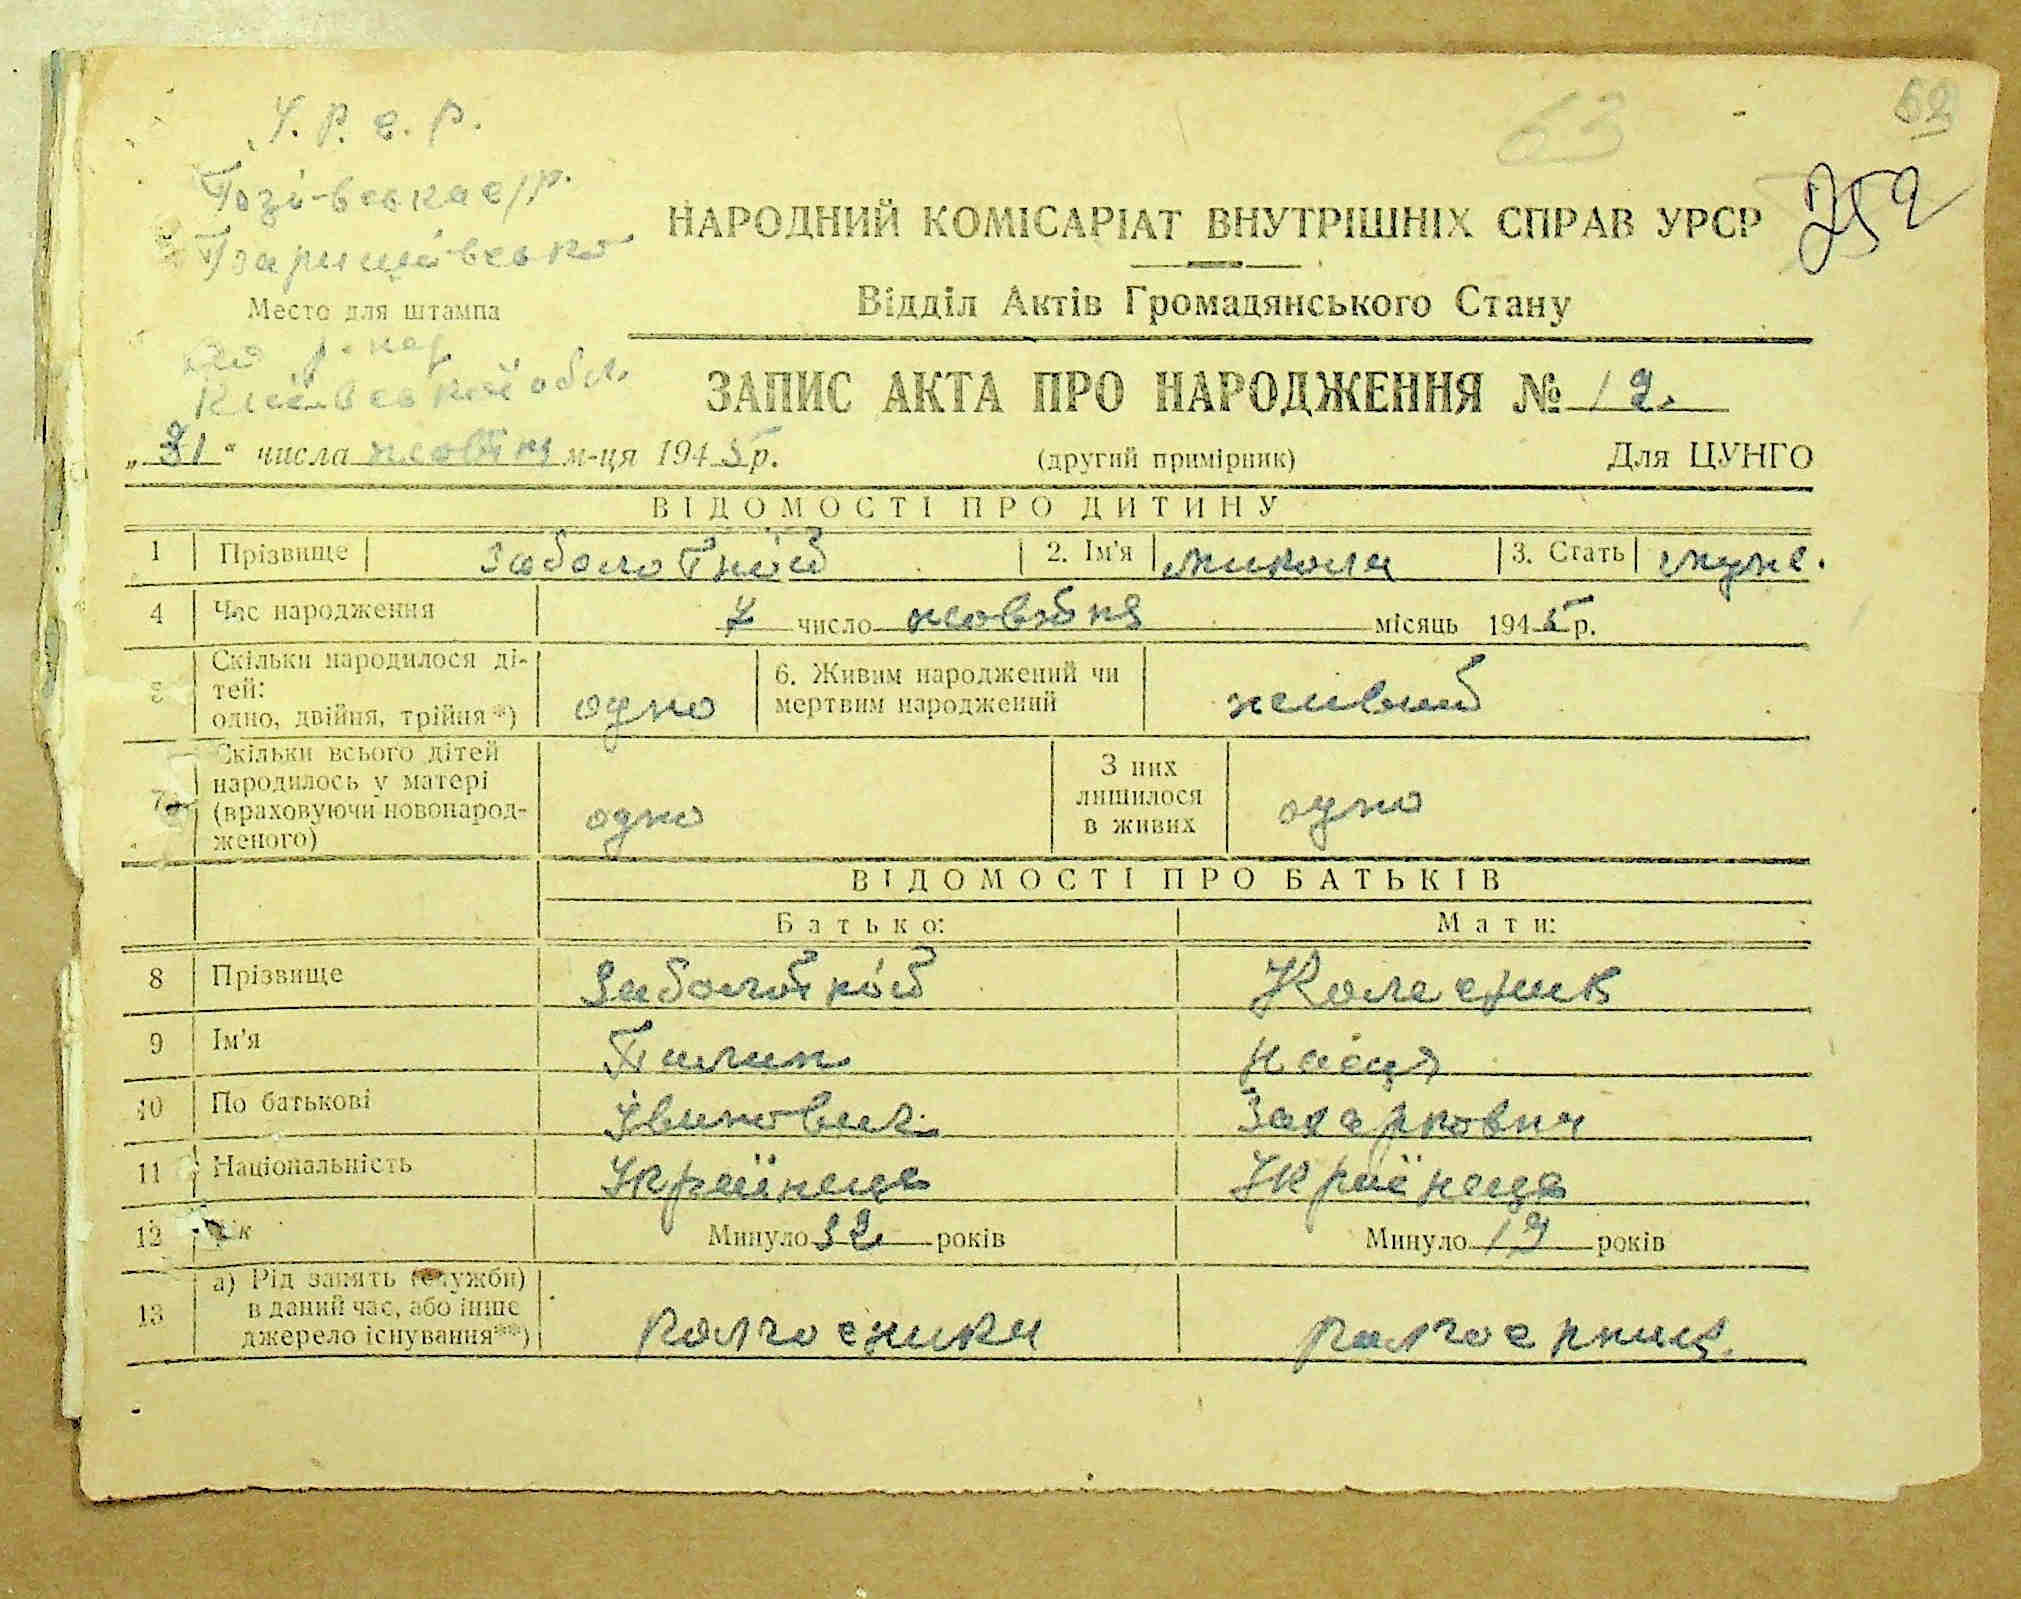 У. Р. С. Р.
63
62
252
НАРОДНИЙ КОМІСАРІАТ ВНУТРІШНІХ СПРАВ УРСР
Место для штампа
Відділ Актів Громадянського Стану
Київської обл.
ЗАПИС АКТА ПРО НАРОДЖЕННЯ № 12.
„31“ числа жовтня м-ця 1945 р. (другий примірник) Для ЦУНГО
ВІДОМОСТІ ПРО ДИТИНУ
1 Прізвище Заболотній 2. Ім'я Микола 3. Стать муже.
4 Час народження 7 число жовтня місяць 1945 р.
5 Скільки народилося ді-
тей:
одно, двійня, трійня*) одно 6. Живим народжений чи
мертвим народжений живий
7 Скільки всього дітей
народилось у матері
(враховуючи новонарод-
женого) одно З них
лишилося
в живих одно
ВІДОМОСТІ ПРО БАТЬКІВ
Батько: Мати:
8 Прізвище Заболотній Колесник
9 Ім'я Пилип Настя
10 По батькові Іванович Захарковна
11 Національність Українець
12 Вік Минуло 32 років Минуло 19 років
13 а) Рід занять (служби)
в даний час, або інше
джерело існування**) колгосники